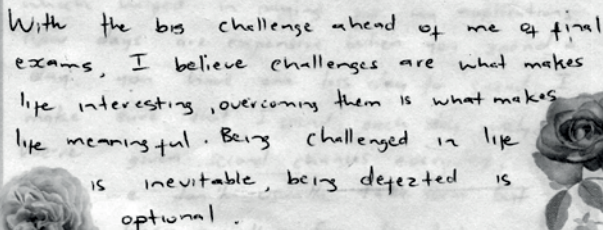 With the big challenge ahead of me of final
exams, I believe challenges are what makes
life interesting, overcoming them is what makes
life meaningful. Being challenged in life
is inevitable, being defeated is
optional.